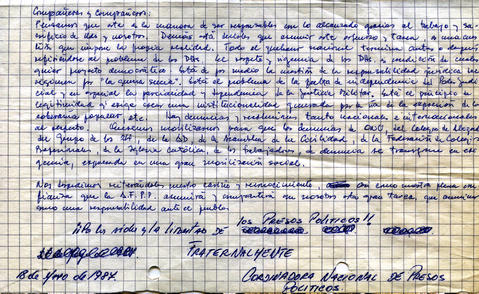 Compañeras y compañeros:
Pensamos que esta es la manera de ser responsables con lo alcanzado gracias al trabajo y sa-
crificio de Uds y nosotros. Demás está decirles que asumir este esfuerzo y tarea, es una cues
tión que impone la propia realidad. Todo el quehacer nacional termina antes o después
refiriéndose al problema de los DDHH. El respeto y vigencia de los DDHH es condición de cual
quier proyecto democrático. Está de por medio la cuestión de la responsabilidad jurídica del
régimen por la "guerra sucia". Está el problema de la falta de independencia del Poder Judi
cial y en especial la parcialidad y dependencia de la Justicia Militar. Está el principio de
legitimidad que exige una institucionalidad generada por la vía de la expresión de la
soberanía popular, etc. Hay denuncias y resoluciones tanto nacionales e internacionales
al respecto. Creemos movilizarnos para que las denuncias de ONU, del Colegio de Abogados
del Grupo de los 24, de la de la Asamblea de la Civilidad, de la Federación de Colegios
Profesionales, de la Iglesia Católica, de los trabajadores, la denuncia se transforme en exi
gencia, expresada en una gran movilización social.
Nos despedimos reiterándoles mucho cariño y reconocimiento, con nuestra plena con
fianza que la A.F.P.P. asumirá y compartirá con nosotros esta gran tarea, que asumimos
como una responsabilidad ante el pueblo.
¡¡Por la vida y la libertad de los PRESOS POLITICOS!!
FRATERNALMENTE
18 de Mayo de 1987.
COORDINADORA NACIONAL DE PRESOS
POLITICOS